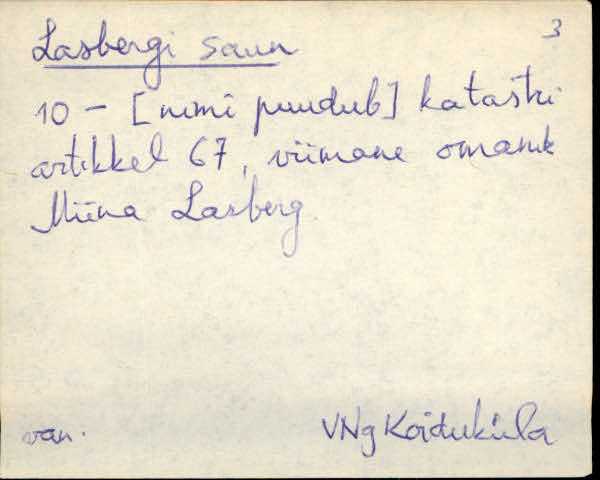 3
Lasbergi saun
10 - [nimi puudub] katastri
artikkel 67, viimane omanik
Miina Lasberg
van. VNg Koiduküla